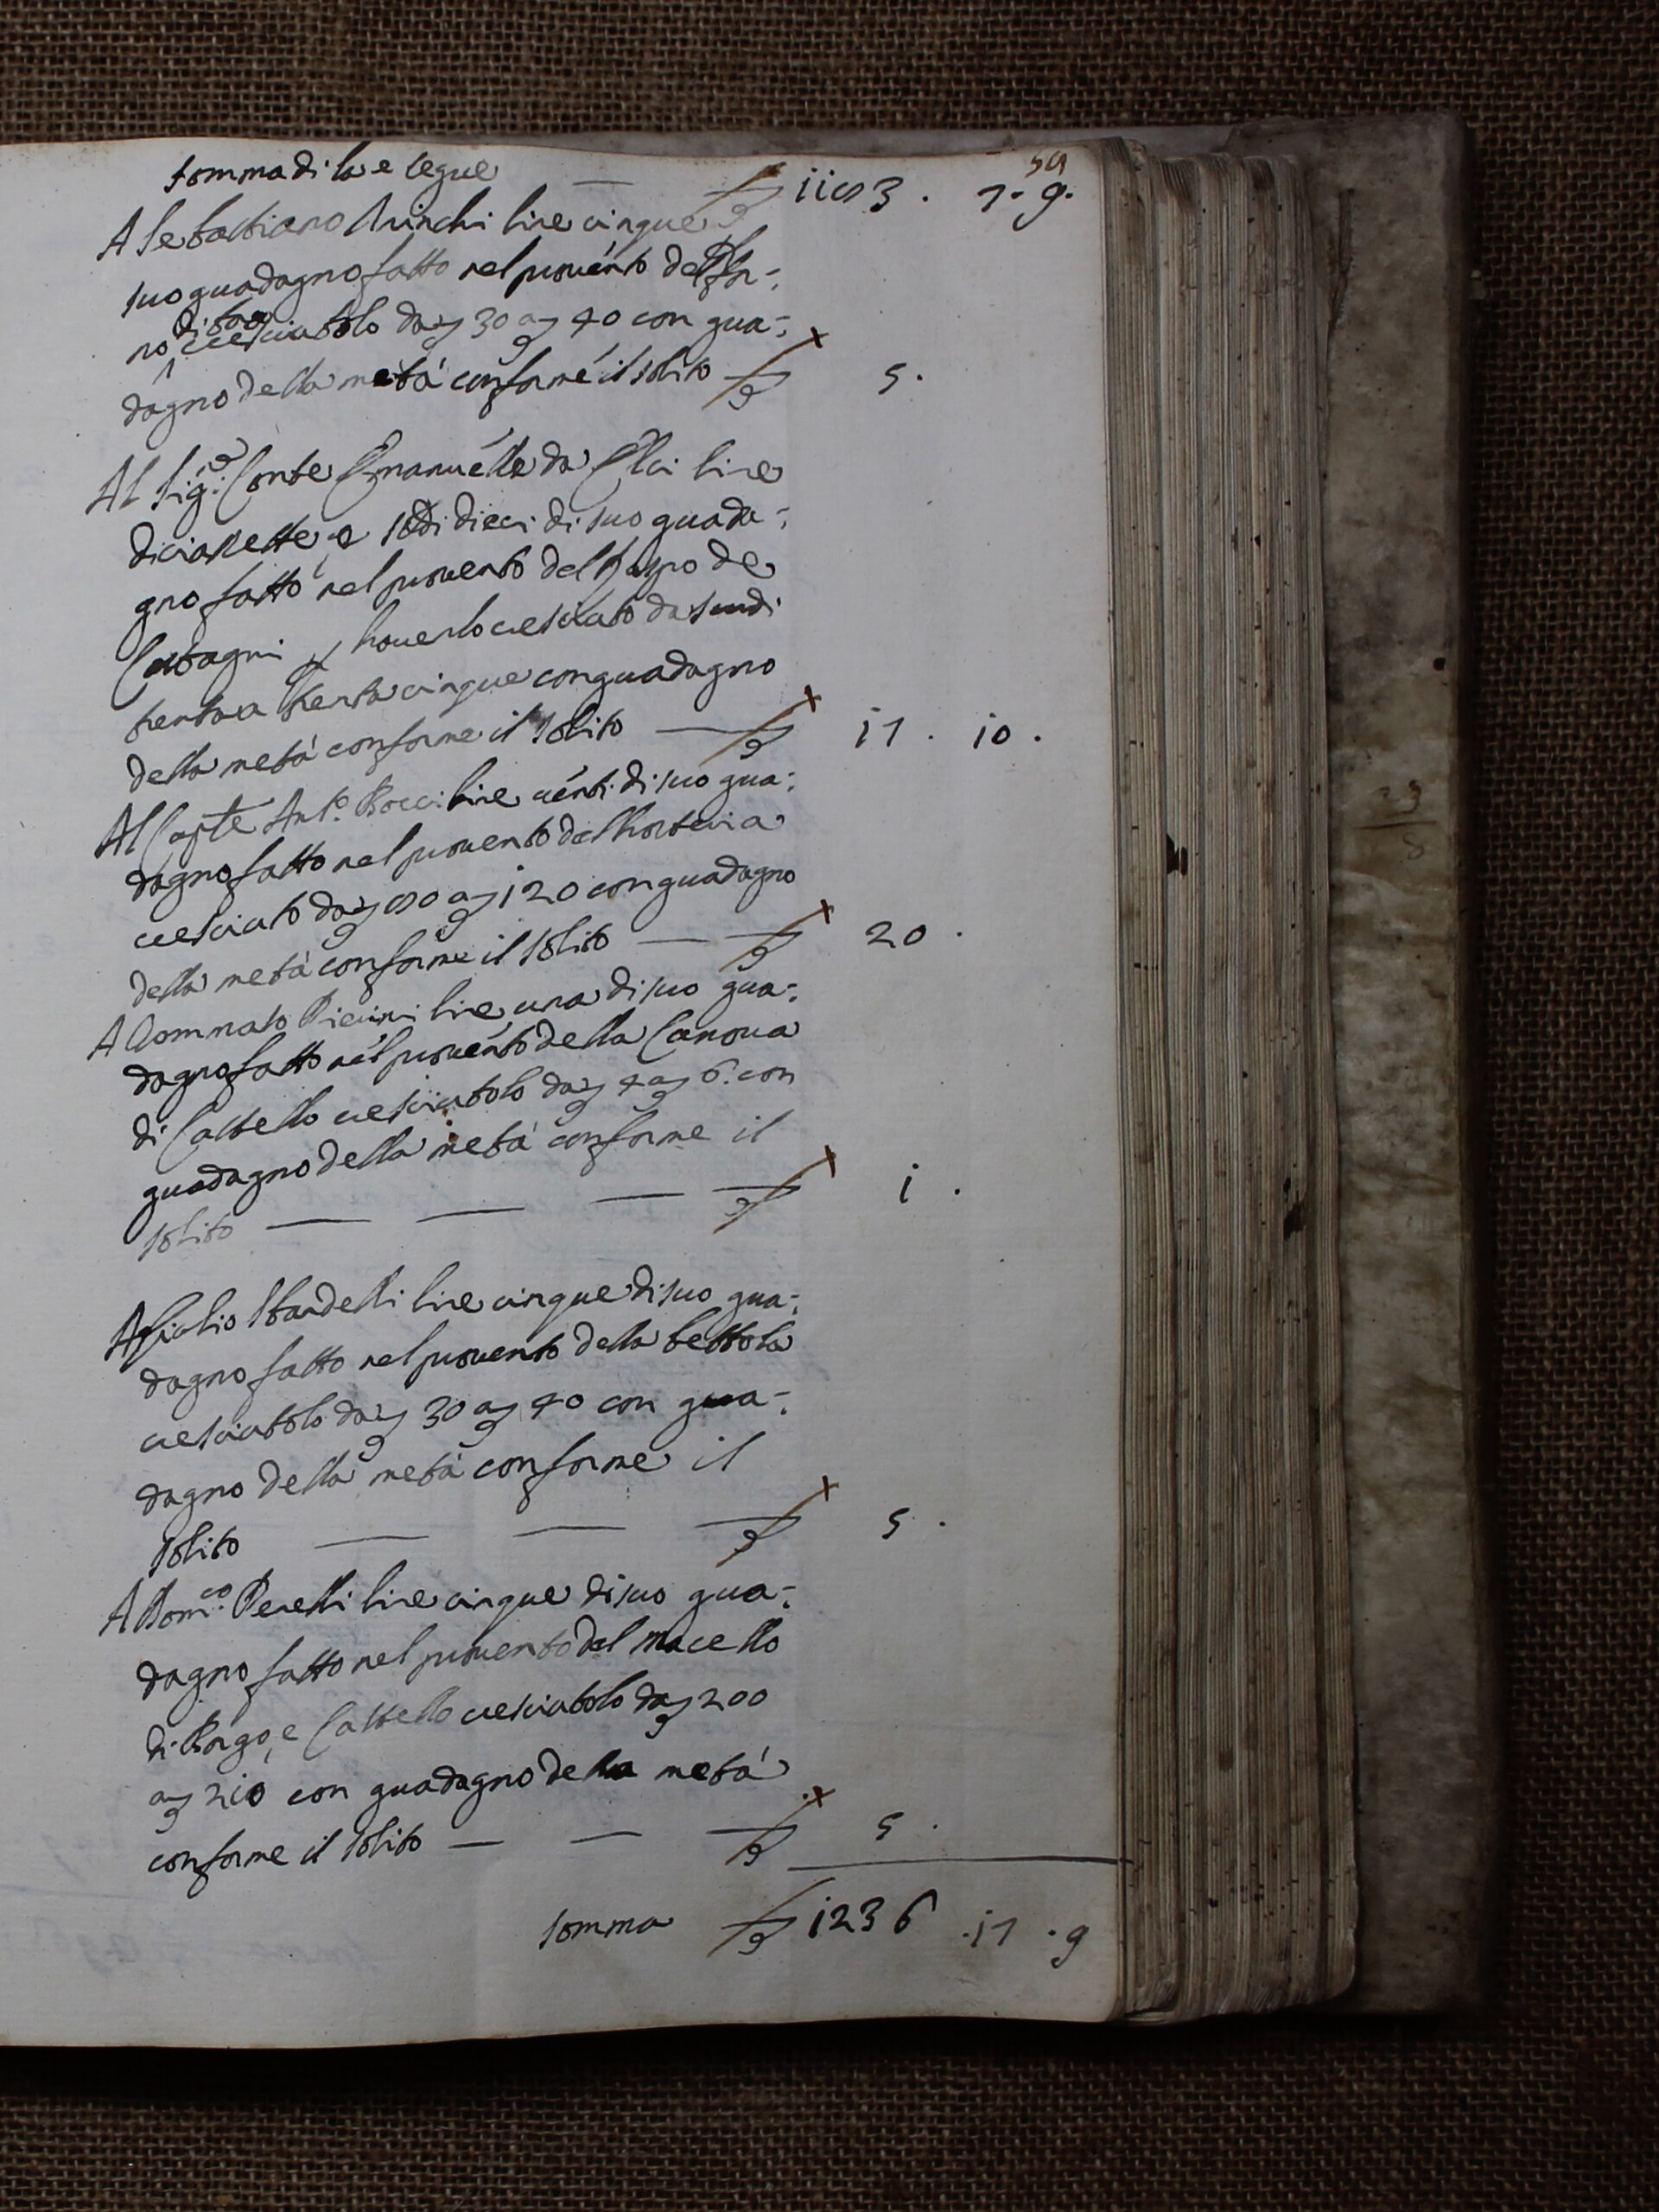 59
somma di la e segue — £ 1183. 7. 9.
A Sebastiano Minchi lire cinque
suo guadagno fatto nel provento del for-
no di sop. cresciutolo da 30 a 40 con gua-
dagno della metà conforme il solito £ 5.
Al Sig.re Conte Emanuelle da Elci lire
diciasette, e soldi dieci di suo guada-
gno fatto nel provento del Raspo de
Castagni p haverlo cresciuto da scudi
trenta a trenta cinque con guadagno
della metà conforme il solito — £ 17. 10.
Al Capte Ant.o Rocci lire venti di suo gua-
dagno fatto nel provento dell'hosteria
cresciuto da 80 a 120 con guadagno
della metà conforme il solito — £ 20.
A Tommaso Picini lire una di suo gua-
dagno fatto nel provento della Canova
di Castello cresciutolo da 4 a 6. con
guadagno della metà conforme il
solito — — — £ 1.
A Giulio Nardelli lire cinque di suo gua-
dagno fatto nel provento della bettola
cresciutolo da 30 a 40 con gua-
dagno della metà conforme il
solito — — £ 5.
A Dom.co Peretti lire cinque di suo gua-
dagno fatto nel provento del macello
di Borgo, e Castello cresciutolo da 200
a 210 con guadagno della metà
conforme il solito — — £ 5.
somma £ 1236. 17. 9